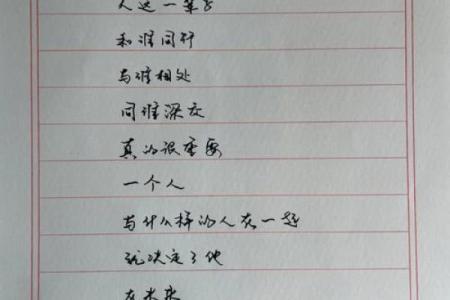 人这一辈子
和谁同行
与谁相处
同谁深交
真的很重要
一个人
与什么样的人在一起
就决定了他
在未来